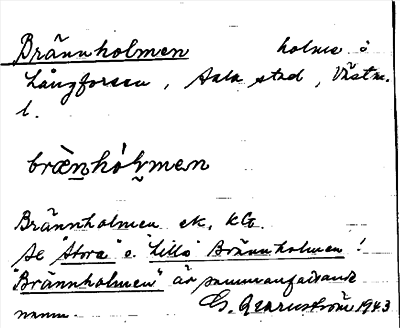 Brännholmen holme i
Långforsen, Sala stad, Västm.
l.
bræ̀nhól̥men
Brännholmen ek. KG.
Se "Stora" o. "Lilla" Brännholmen!
"Brännholmen" är sammanfattande
namn. G. 1943